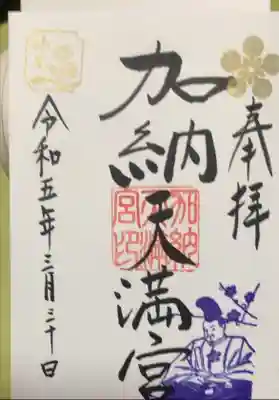 奉拝
加納天満宮
加納天満宮印
令和五年三月三十日